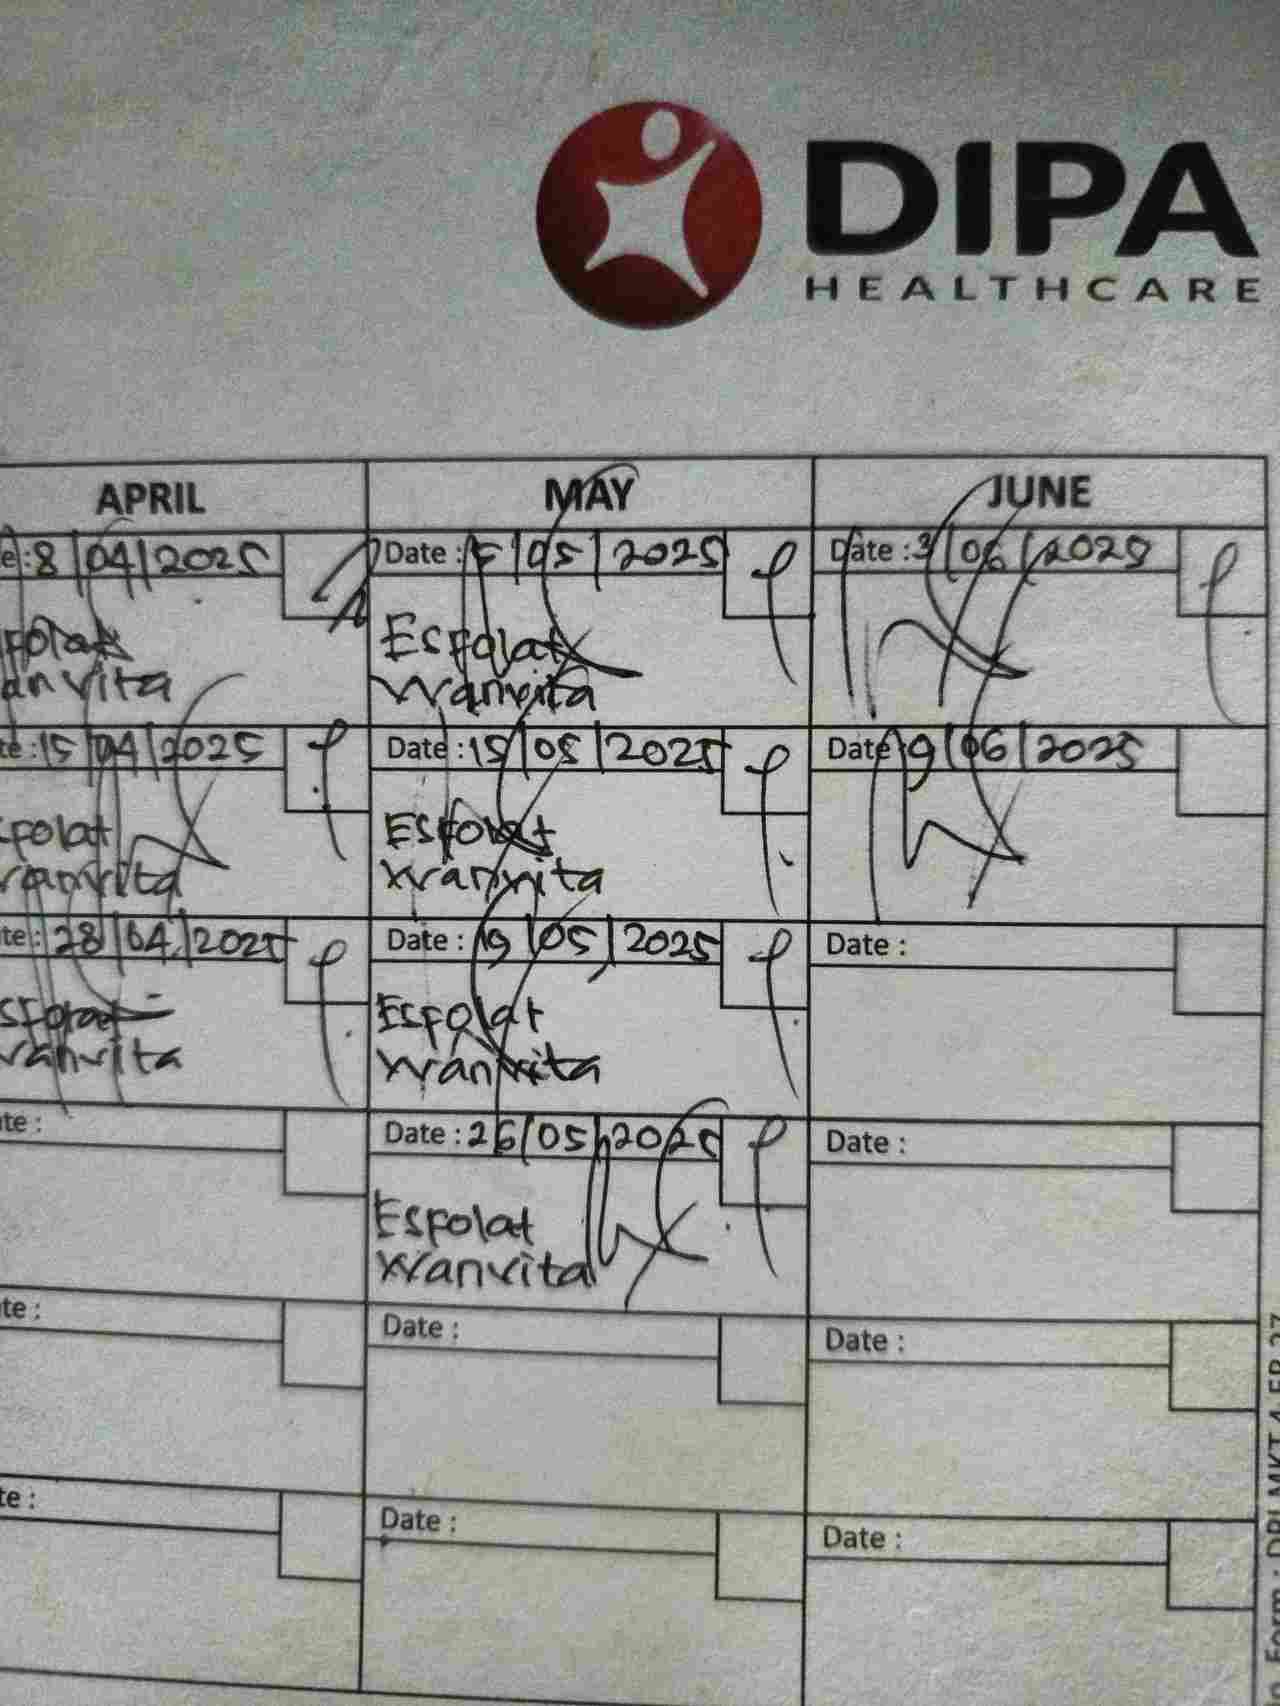 DIPA
HEALTHCARE
APRIL MAY JUNE
e : 8/04/2025 Date : 5/05/2025 Date : 3/06/2025
sfolat Esfolat
anvita Wanvita
te : 15/04/2025 Date : 15/05/2025 Date : 9/06/2025
sfolat Esfolat
Wanvita Wanvita
te : 28/04/2025 Date : 19/05/2025 Date :
sfolat Esfolat
Wanvita Wanvita
te : Date : 26/05/2025 Date :
Esfolat
Wanvita
te : Date : Date :
te : Date : Date :
Form : DPI MKT 4 FR 27